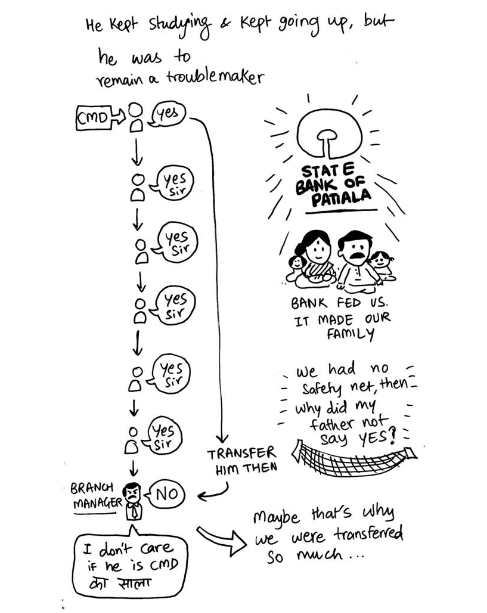 He Kept Studying & Kept going up, but
he was to
remain a troublemaker
CMD
yes
yes
sir
yes
sir
yes
sir
yes
sir
yes
sir
BRANCH
MANAGER
NO
I don't care
if he is CMD
का साला
TRANSFER
HIM THEN
STATE
BANK OF
PATIALA
BANK FED US.
IT MADE OUR
FAMILY
we had no
safety net, then
why did my
father not
say YES?
Maybe that's why
we were transferred
so much...